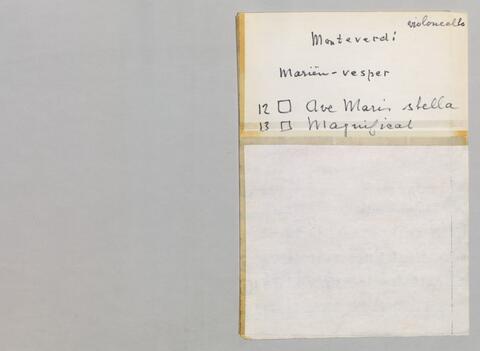 violoncello
Monteverdi
Mariën-vesper
12 □ Ave Maris stella
13 □ Magnificat